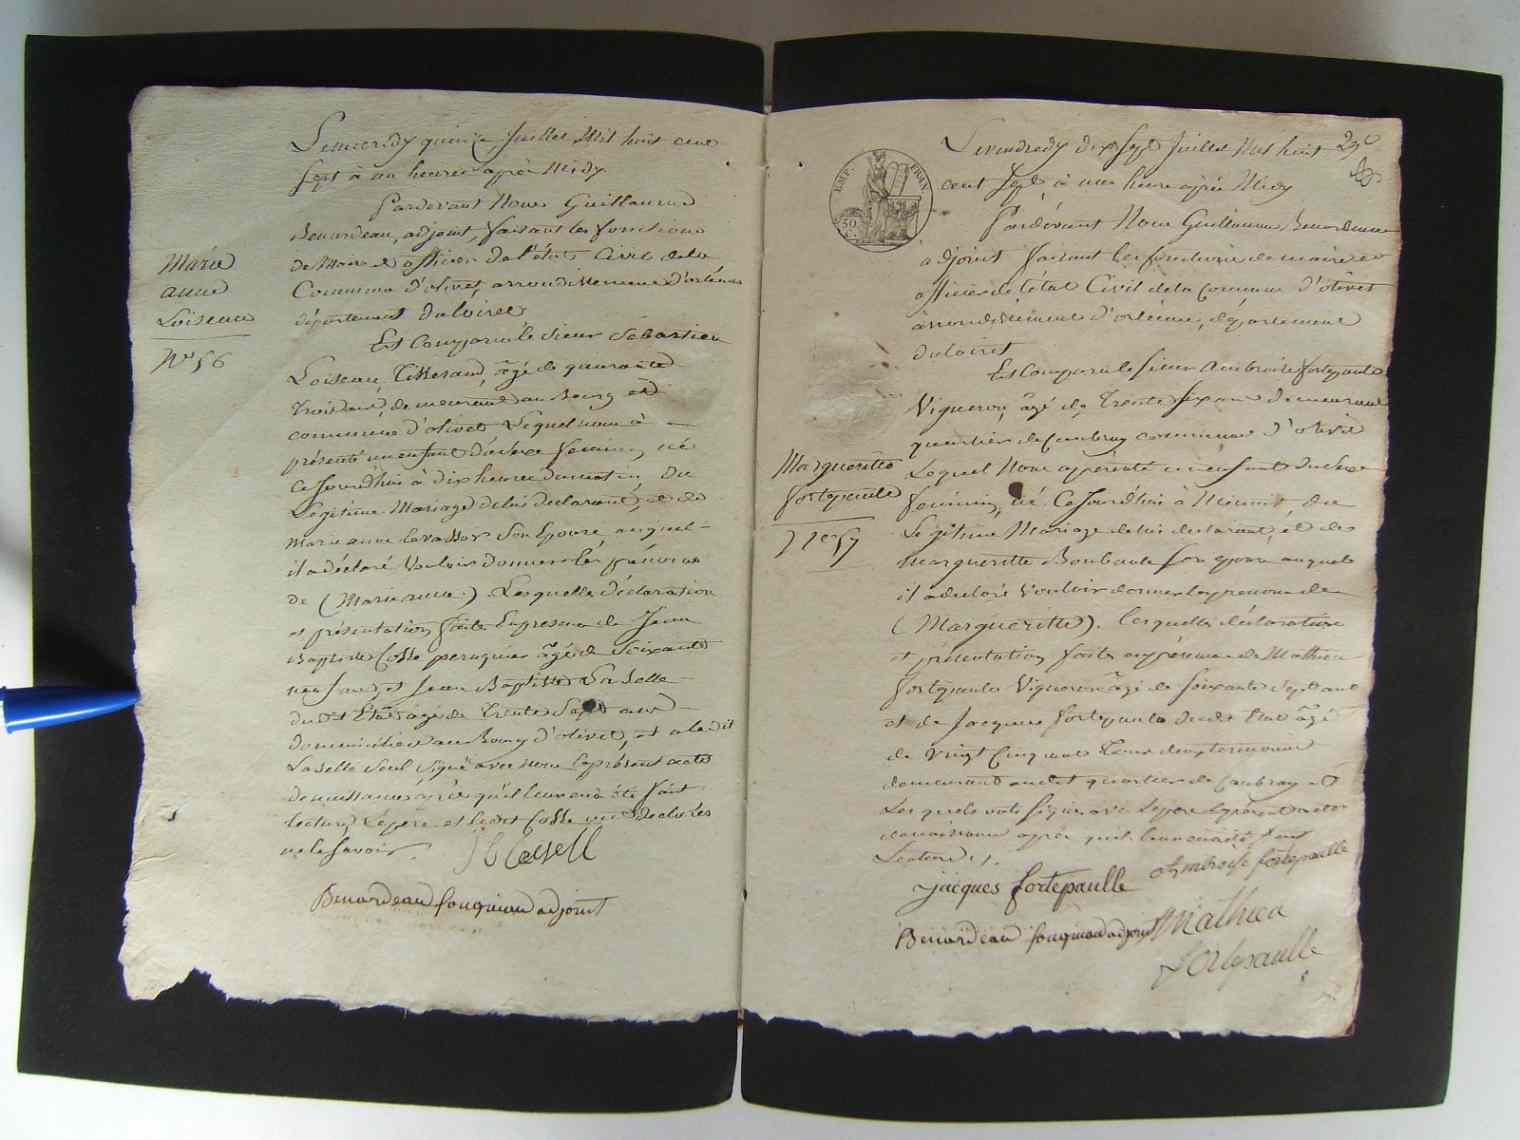 Le mercredy quinze Juillet Mil huit cent
sept à un heure après Midy
Pardevant Nous Guillaume
Benardeau, adjoint, faisant les fonctions
de Maire et officier de l'état Civil de la
Commune d'olivet arrondissement d'orléans
département du loiret
Est Comparu le Sieur Sébastien
Loiseau, Tisserand, âgé de quarante
trois ans, demeurant au Bourg et
commune d'olivet Lequel nous à
présenté un enfant du sexe féminin, né
ce Jourd'hui à dix heures du matin, du
Légitime Mariage de lui déclarant, et de
Marie anne Levassor Son Epouse auquel
il a déclaré Vouloir donner les prénoms
de (Marie anne) Lesquelles déclaration
et présentation faites En presence de Jean
Baptiste Cosse peruquier âgé de Soixante
neuf ans, et Jean Baptiste Laselle
dudit Etat âgé de Trente Sept ans
domiciliés au Bourg d'olivet, et a ledit
Laselle Seul Signé avec nous le présent acte
de naissance après qu'il leur en à été fait
lecture, Le pere et ledit Cosse ont Declarés
ne le Savoir.
Benardeau fouqueau adjoint
Marie
anne
Loiseau
N° 56
Le vendredy dix Sept Juillet Mil huit
cent Sept à une heure après Midy
Pardevant Nous Guillaume Benardeau
adjoint faisant les fonctions de maire et
officier de l'état Civil de la Commune d'olivet
arrondissement d'orléans, département
du loiret
Est Comparu le Sieur Ambroise fortepaulle
Vigneron, âgé de Trente Six ans demeurant
quartier de Coubray commune d'olivet
Lequel Nous a présenté un enfant du Sexe
féminin, né Ce Jourd'hui à Minuit, du
Légitime Mariage de lui déclarant, et de
Margueritte Son epouse auquel
il a déclaré Vouloir donner les prenoms de
(Margueritte). lesquelles déclaration
et présentation faites en présence de Mathieu
fortepaulle Vigneron âgé de soixante sept ans
et de Jacques fortepaulle dudit Etat âgé
de Vingt Cinq ans Tous deux
demeurant audit quartier de Coubray et
Lesquels ont Signé avec le pere le présent acte
de naissance après qu'il leur en a été fait
Lecture.
Jacques fortepaulle Ambroise fortepaulle
Benardeau fouqueau adjoint Mathieu
fortepaulle
Margueritte
fortepaulle
N° 57
EMP. FRAN.
50